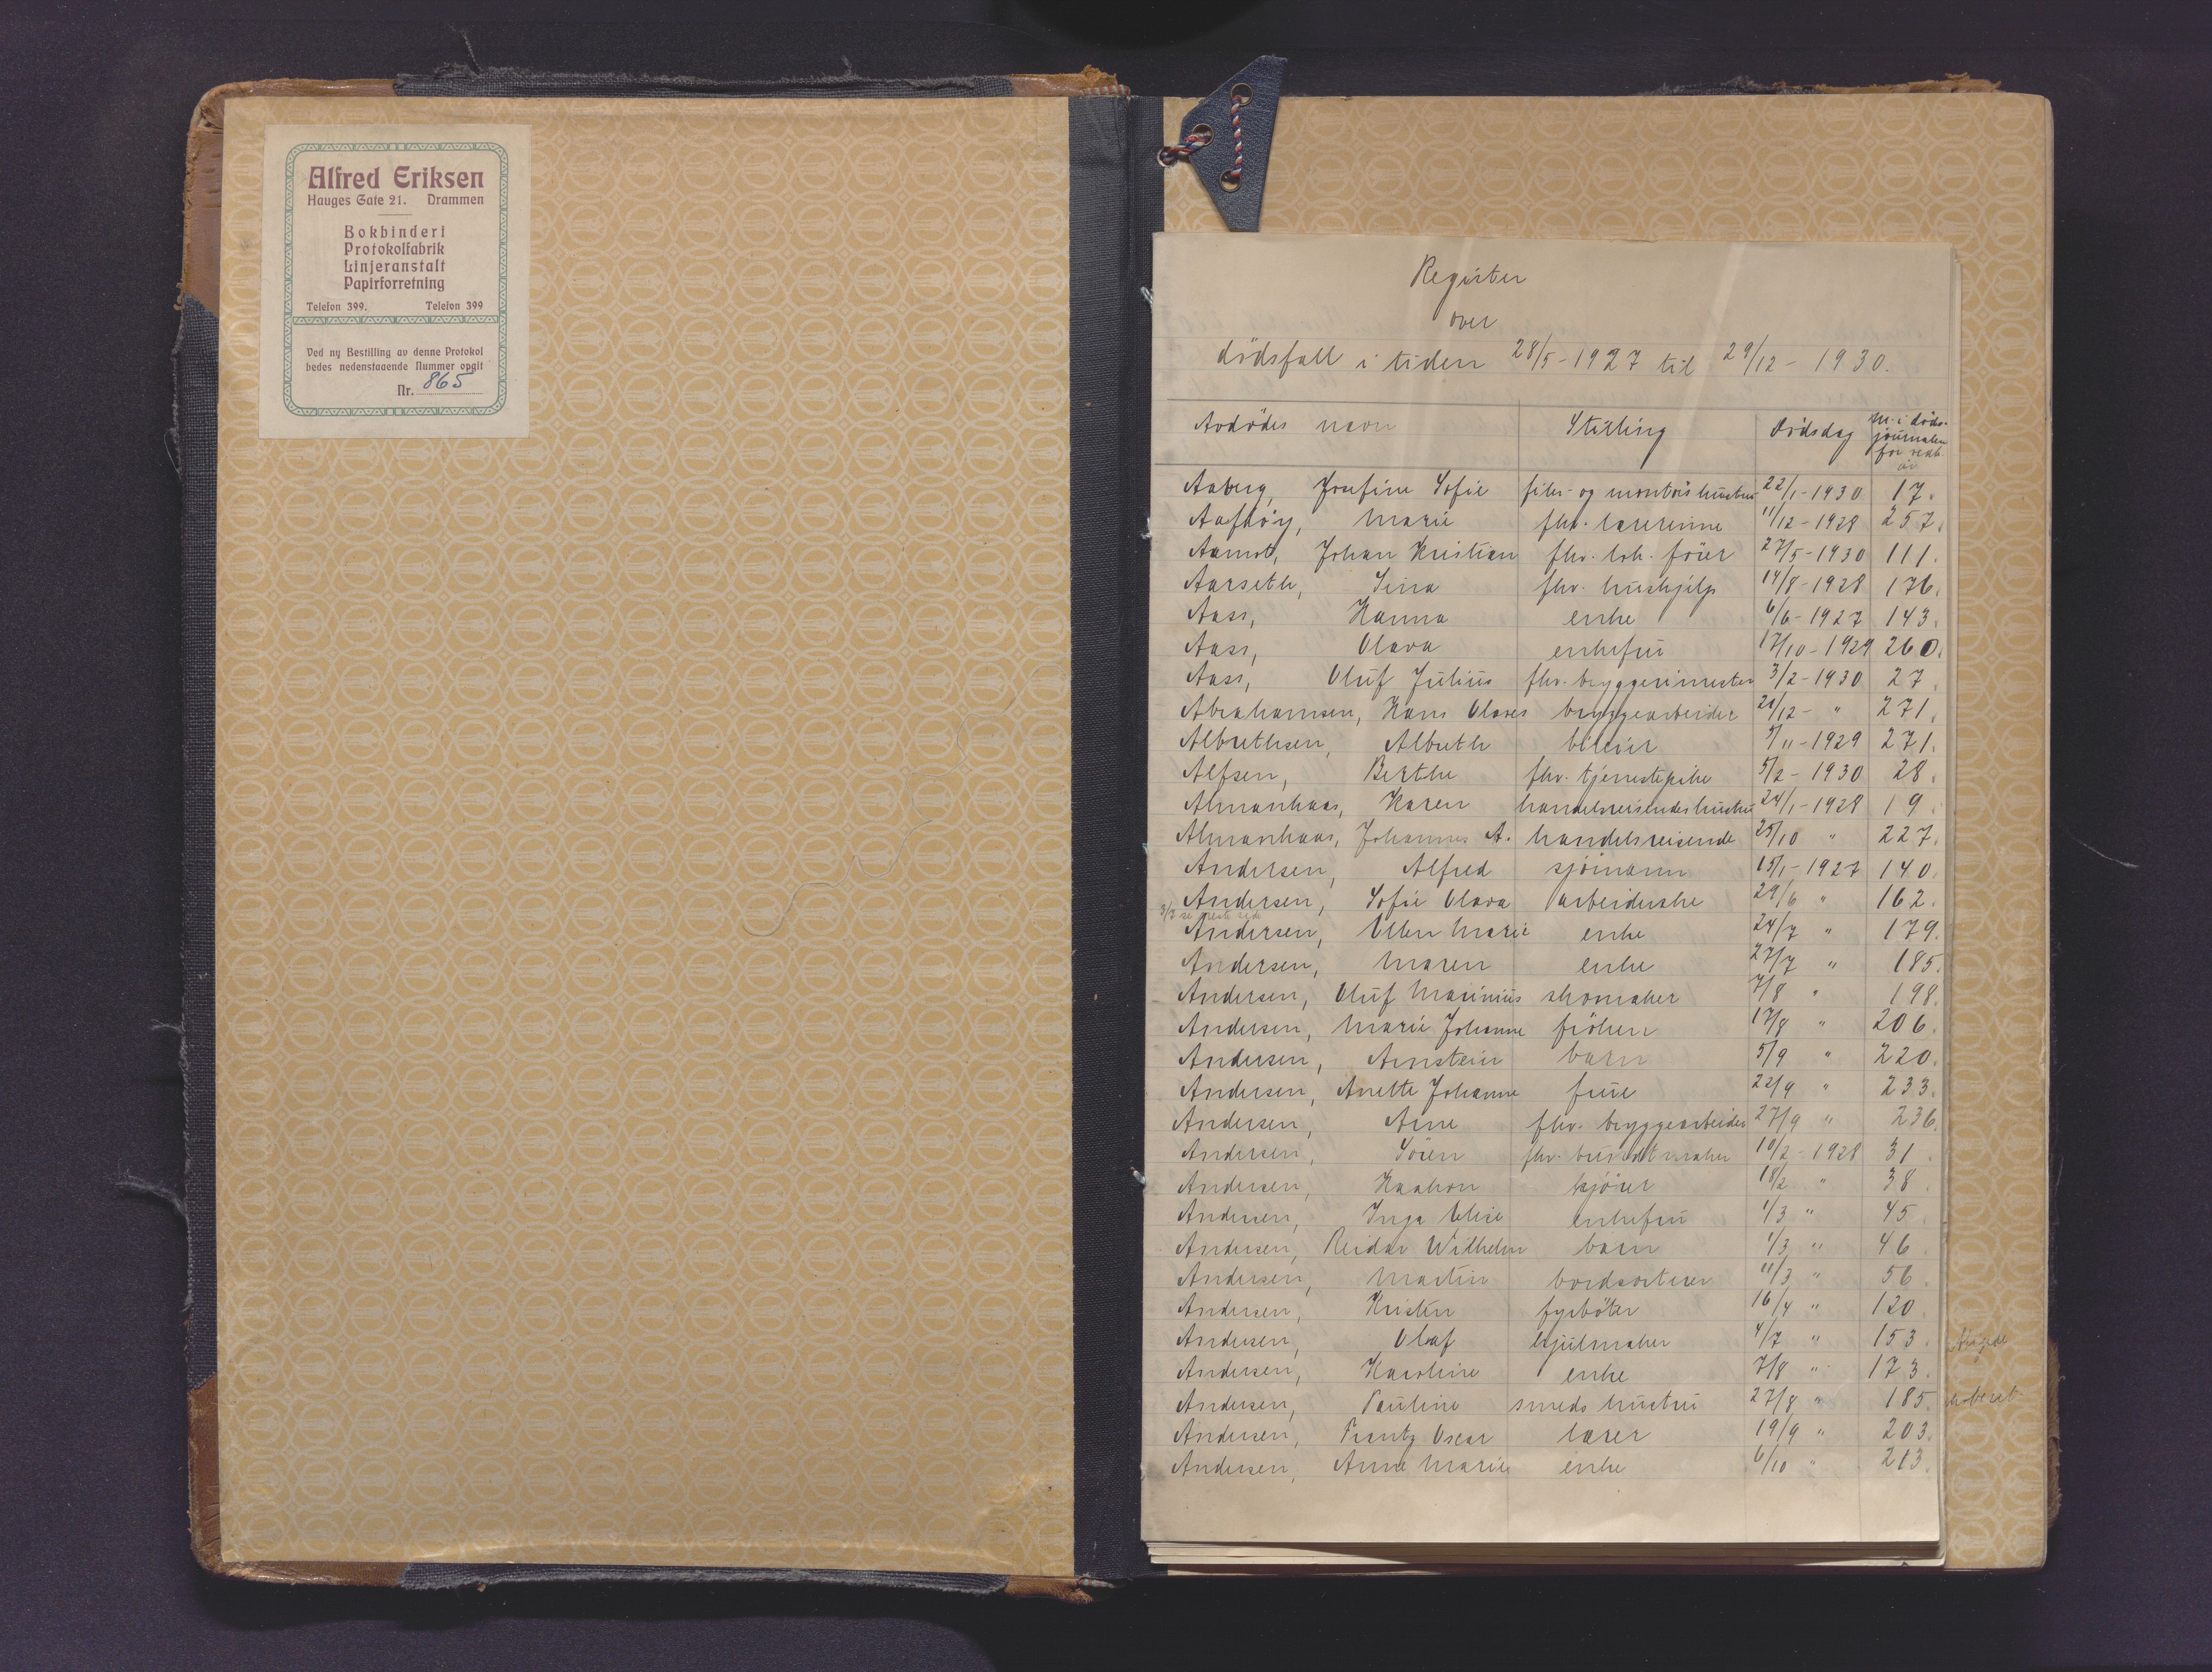 Alfred Eriksen
Hauges Gate 21. Drammen
Bokbinderi
Protokolfabrik
Linjeranstalt
Papirforretning
Telefon 399. Telefon 399
Ved ny Bestilling av denne Protokol
bedes nedenstaaende Nummer opgit
Nr. 865
Register
over
dödsfall i tiden 28/5-1927 til 29/12-1930.
Avdödes navn Stilling Dödsdag Nr. i döds-
journalen
for vedk.
år
Aaberg, Josefine Sofie filer- og montörshustru 22/1-1930 17.
Marie fhv. lærerinne 11/12-1928 257.
Aamot, Johan Kristian fhv. lok. förer 27/5-1930 111.
Aarseth, Sina fhv. hushjelp 14/8-1928 176.
Aass, Hanna enke 6/6-1927 143.
Aass, Olava enkefru 17/10-1929 260.
Aass, Oluf Julius fhv. bryggerimester 3/2-1930 27.
Abrahamsen, Hans Olaves bryggearbeider 21/12- " 271.
Albrethsen, Albreth bileier 5/11-1929 271.
Alfsen, Berthe fhv. tjenestepike 5/2-1930 28.
Almankaas, Karen handelsreisendes hustru 24/1-1928 19.
Almankaas, Johannes A. handelsreisende 25/10 " 227.
Andersen, Alfred sjömann 15/1-1927 140.
Andersen, Sofie Olava arbeiderske 29/6 " 162.
3/7 se neste side
Andersen, Ellen Marie enke 24/7 " 179.
Andersen, Maren enke 27/7 " 185.
Andersen, Oluf Marinius skomaker 7/8 " 198.
Andersen, Marie Johanne fröken 17/8 " 206.
Andersen, Arnstein barn 5/9 " 220.
Andersen, Anette Johanne frue 22/9 " 233.
Andersen, Arne fhv. bryggearbeider 27/9 " 236.
Andersen, Sören fhv. buntmaker 10/2-1928 31.
Andersen, Haakon kjörer 18/2 " 38.
Andersen, Inga Elise enkefru 1/3 " 45
Andersen, Reidar Wilhelm barn 1/3 " 46.
Andersen, Martin bordsorterer 11/3 " 56.
Andersen, Kristen fyrböter 16/4 " 120.
Andersen, Olaf hjulmaker 4/7 " 153.
Andersen, Karoline enke 7/8 " 173.
Andersen, Pauline smeds hustru 27/8 " 185.
Andersen, Frantz Oscar lærer 19/9 " 203.
Andersen, Anne Marie enke 6/10 " 213.